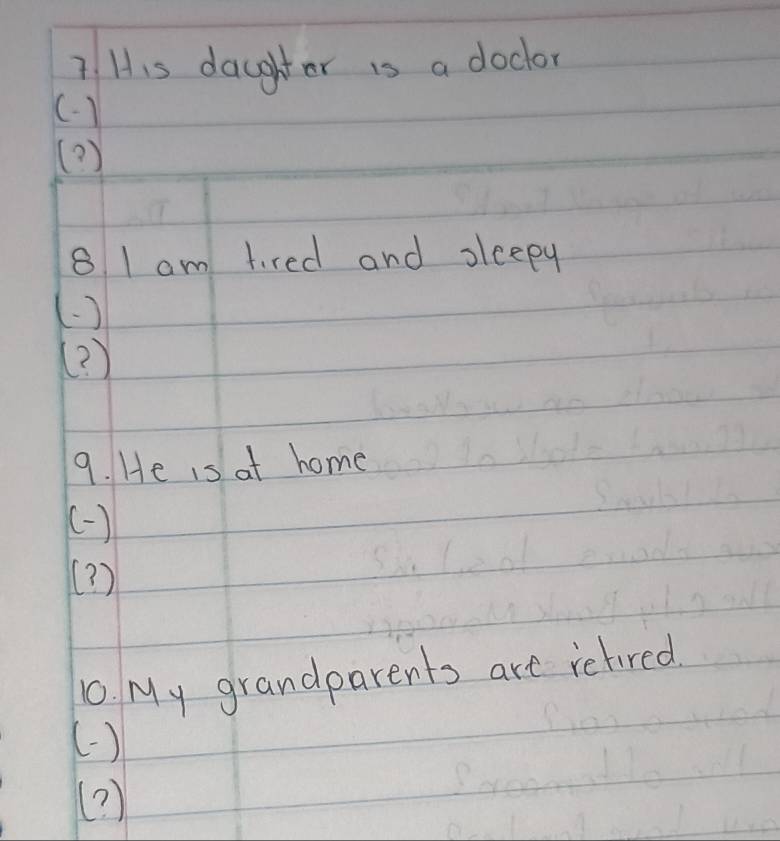 7. His daughter is a doctor
(-)
(?)
8 I am tired and sleepy
(-)
(?)
9. He is at home
(-)
(?)
10. My grandparents are retired.
(-)
(?)